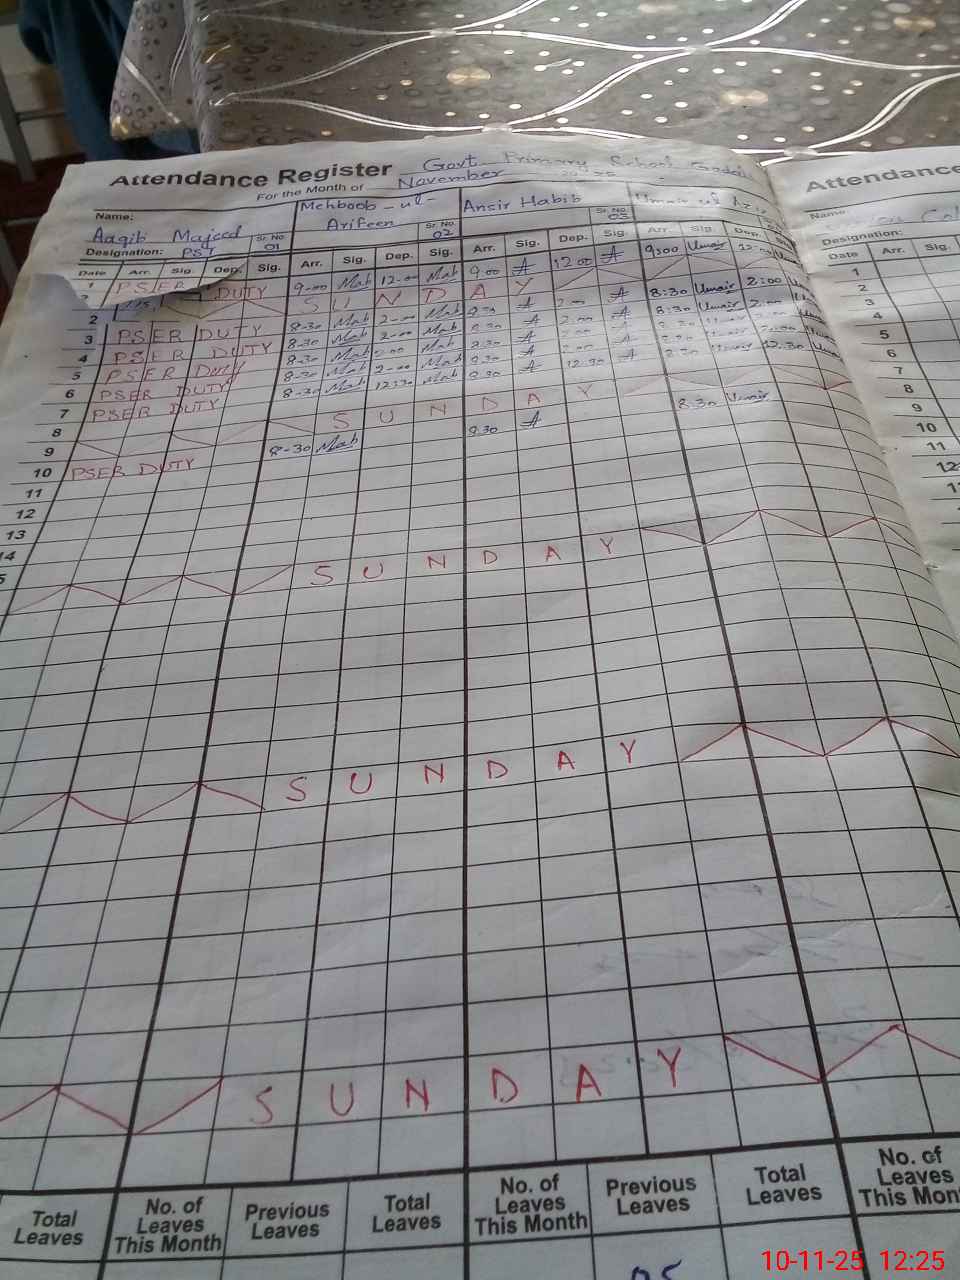 Attendance Register Govt. Primary School
For the Month of November
Name: Mehboob-ul- Ansir Habib
Aaqib Majeed Sr. No. 01 Arifeen Sr. No. 02 Sr. No. 03
Designation: PST
Date Arr. Sig. Dep. Sig. Arr. Sig. Dep. Sig. Arr. Sig. Dep. Sig. Arr. Sig. Dep.
1 PSER DUTY 9-00 Mab 12-00 Mab 9:00 A 12:00 A 9:00 Umair
2 SUNDAY
3 PSER DUTY 8-30 Mab 2-00 Mab 8:30 A 2:00 A 8:30 Umair 2:00
4 PSER DUTY 8-30 Mab 2-00 Mab 8:30 A 2:00 A 8:30 Umair 2:00
5 PSER DUTY 8-30 Mab 2:00 Mab 8:30 A 2:00 A 8:30 Umair 2:00
6 PSER DUTY 8-30 Mab 2-00 Mab 8:30 A 2:00 A 8:30 Umair 2:00
7 PSER DUTY 8-30 Mab 12:30 Mab 8:30 A 12:30 A 8:30 Umair 12:30
8
9 SUNDAY
10 PSER DUTY 8-30 Mab 8:30 A 8:30 Umair
11
12
13
14
SUNDAY
SUNDAY
SUNDAY
Total Leaves No. of Leaves This Month Previous Leaves Total Leaves No. of Leaves This Month Previous Leaves Total Leaves No. of Leaves This
05
Attendance
Name:
Designation:
Date Arr. Sig.
1
2
3
4
5
6
7
8
9
10
11
10-11-25 12:25